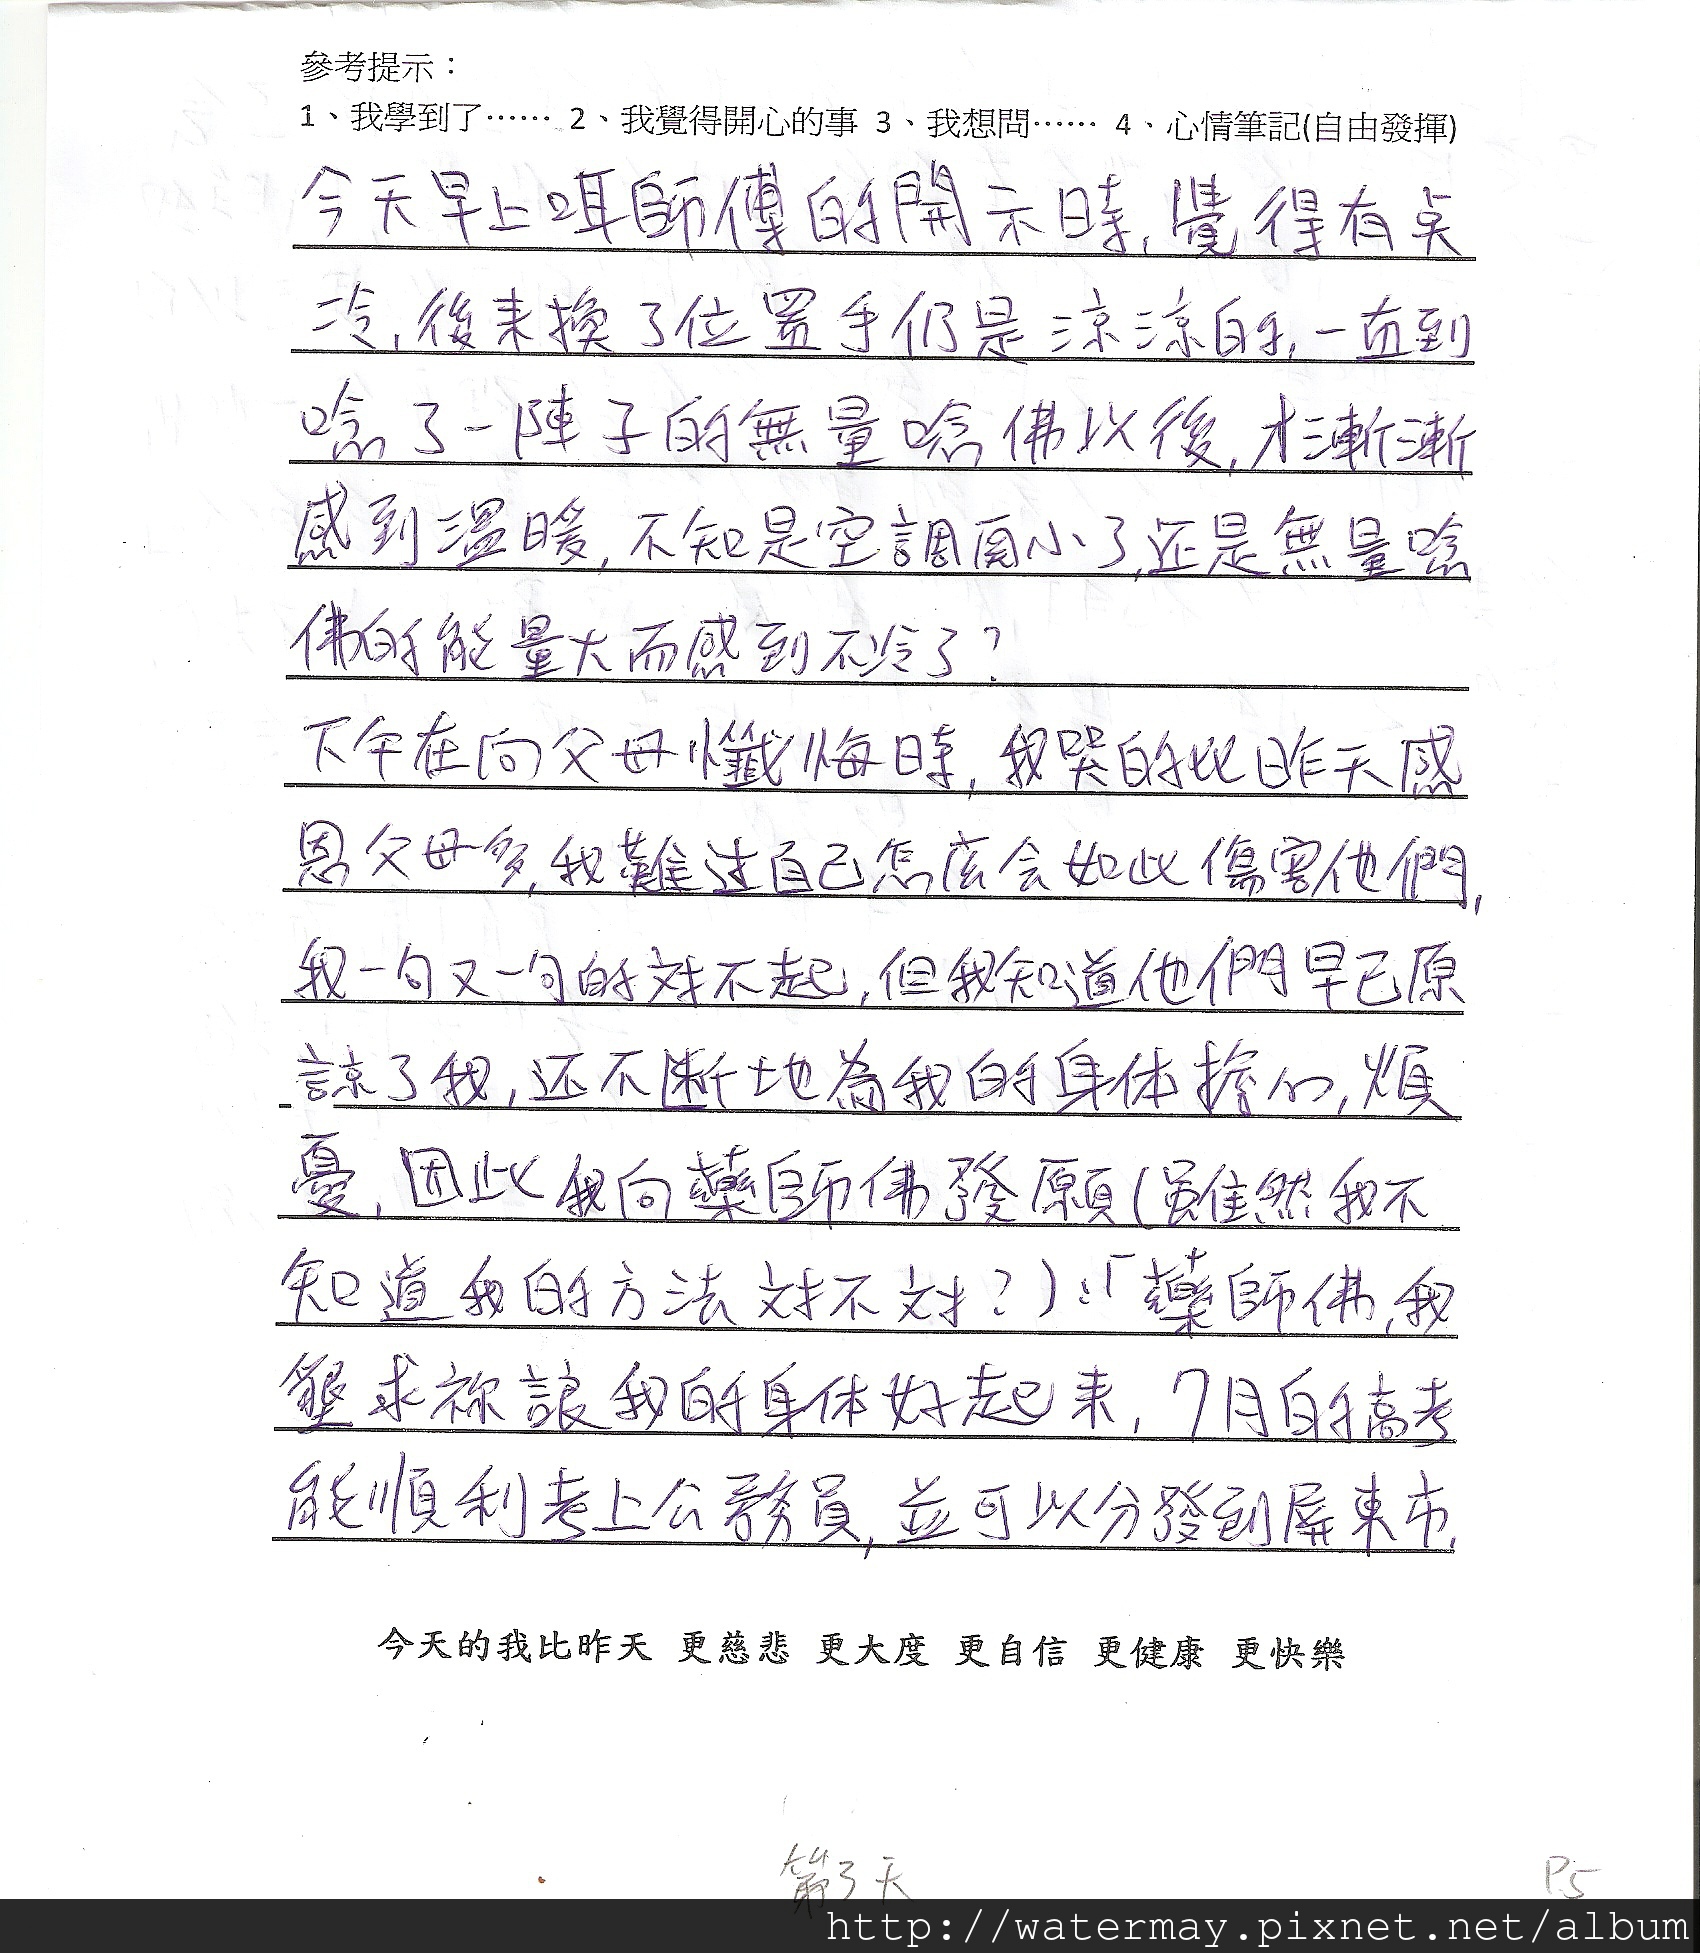 參考提示：
1、我學到了⋯⋯ 2、我覺得開心的事 3、我想問⋯⋯ 4、心情筆記(自由發揮)
今天早上咡師傅的開示時,覺得有点
冷,後来換了位置手仍是涼涼的,一直到
唸了一陣子的無量唸佛以後,才漸漸
感到溫暖,不知是空調風小了,还是無量唸
佛的能量大而感到不冷了?
下午在向父母懺悔時,我哭的比昨天感
恩父母多,我難过自己怎麼会如此傷害他們,
我一句又一句的对不起,但我知道他們早已原
諒了我,还不断地為我的身体擔心,煩
憂,因此我向藥師佛發願(雖然我不
知道我的方法对不对?):「藥師佛,我
墾求祢讓我的身体好起来,7月的高考
能順利考上公務員,並可以分發到屏東市,
今天的我比昨天 更慈悲 更大度 更自信 更健康 更快樂
第3天
P.5
http://watermay.pixnet.net/album